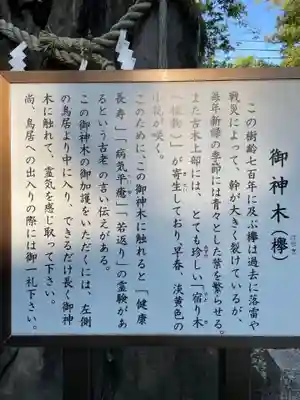 御神木(欅)
けやき
この樹齢七百年に及ぶ欅は過去に落雷や
戦災によって、幹が大きく裂けているが、
毎年新緑の季節には青々とした葉を繁らせる。
また古木上部には、とても珍しい「宿り木
)」が寄生しており、早春、淡黄色の
花が咲く。
このために、この御神木に触れると「健康
長寿」「病気平癒」「若返り」の霊験があ
るという古老の言い伝えがある。
この御神木の御加護をいただくには、左側
の鳥居より中に入り、できるだけ長く御神
木に触れて、霊気を感じ取って下さい。
尚、鳥居への出入りの際には御一礼下さい。